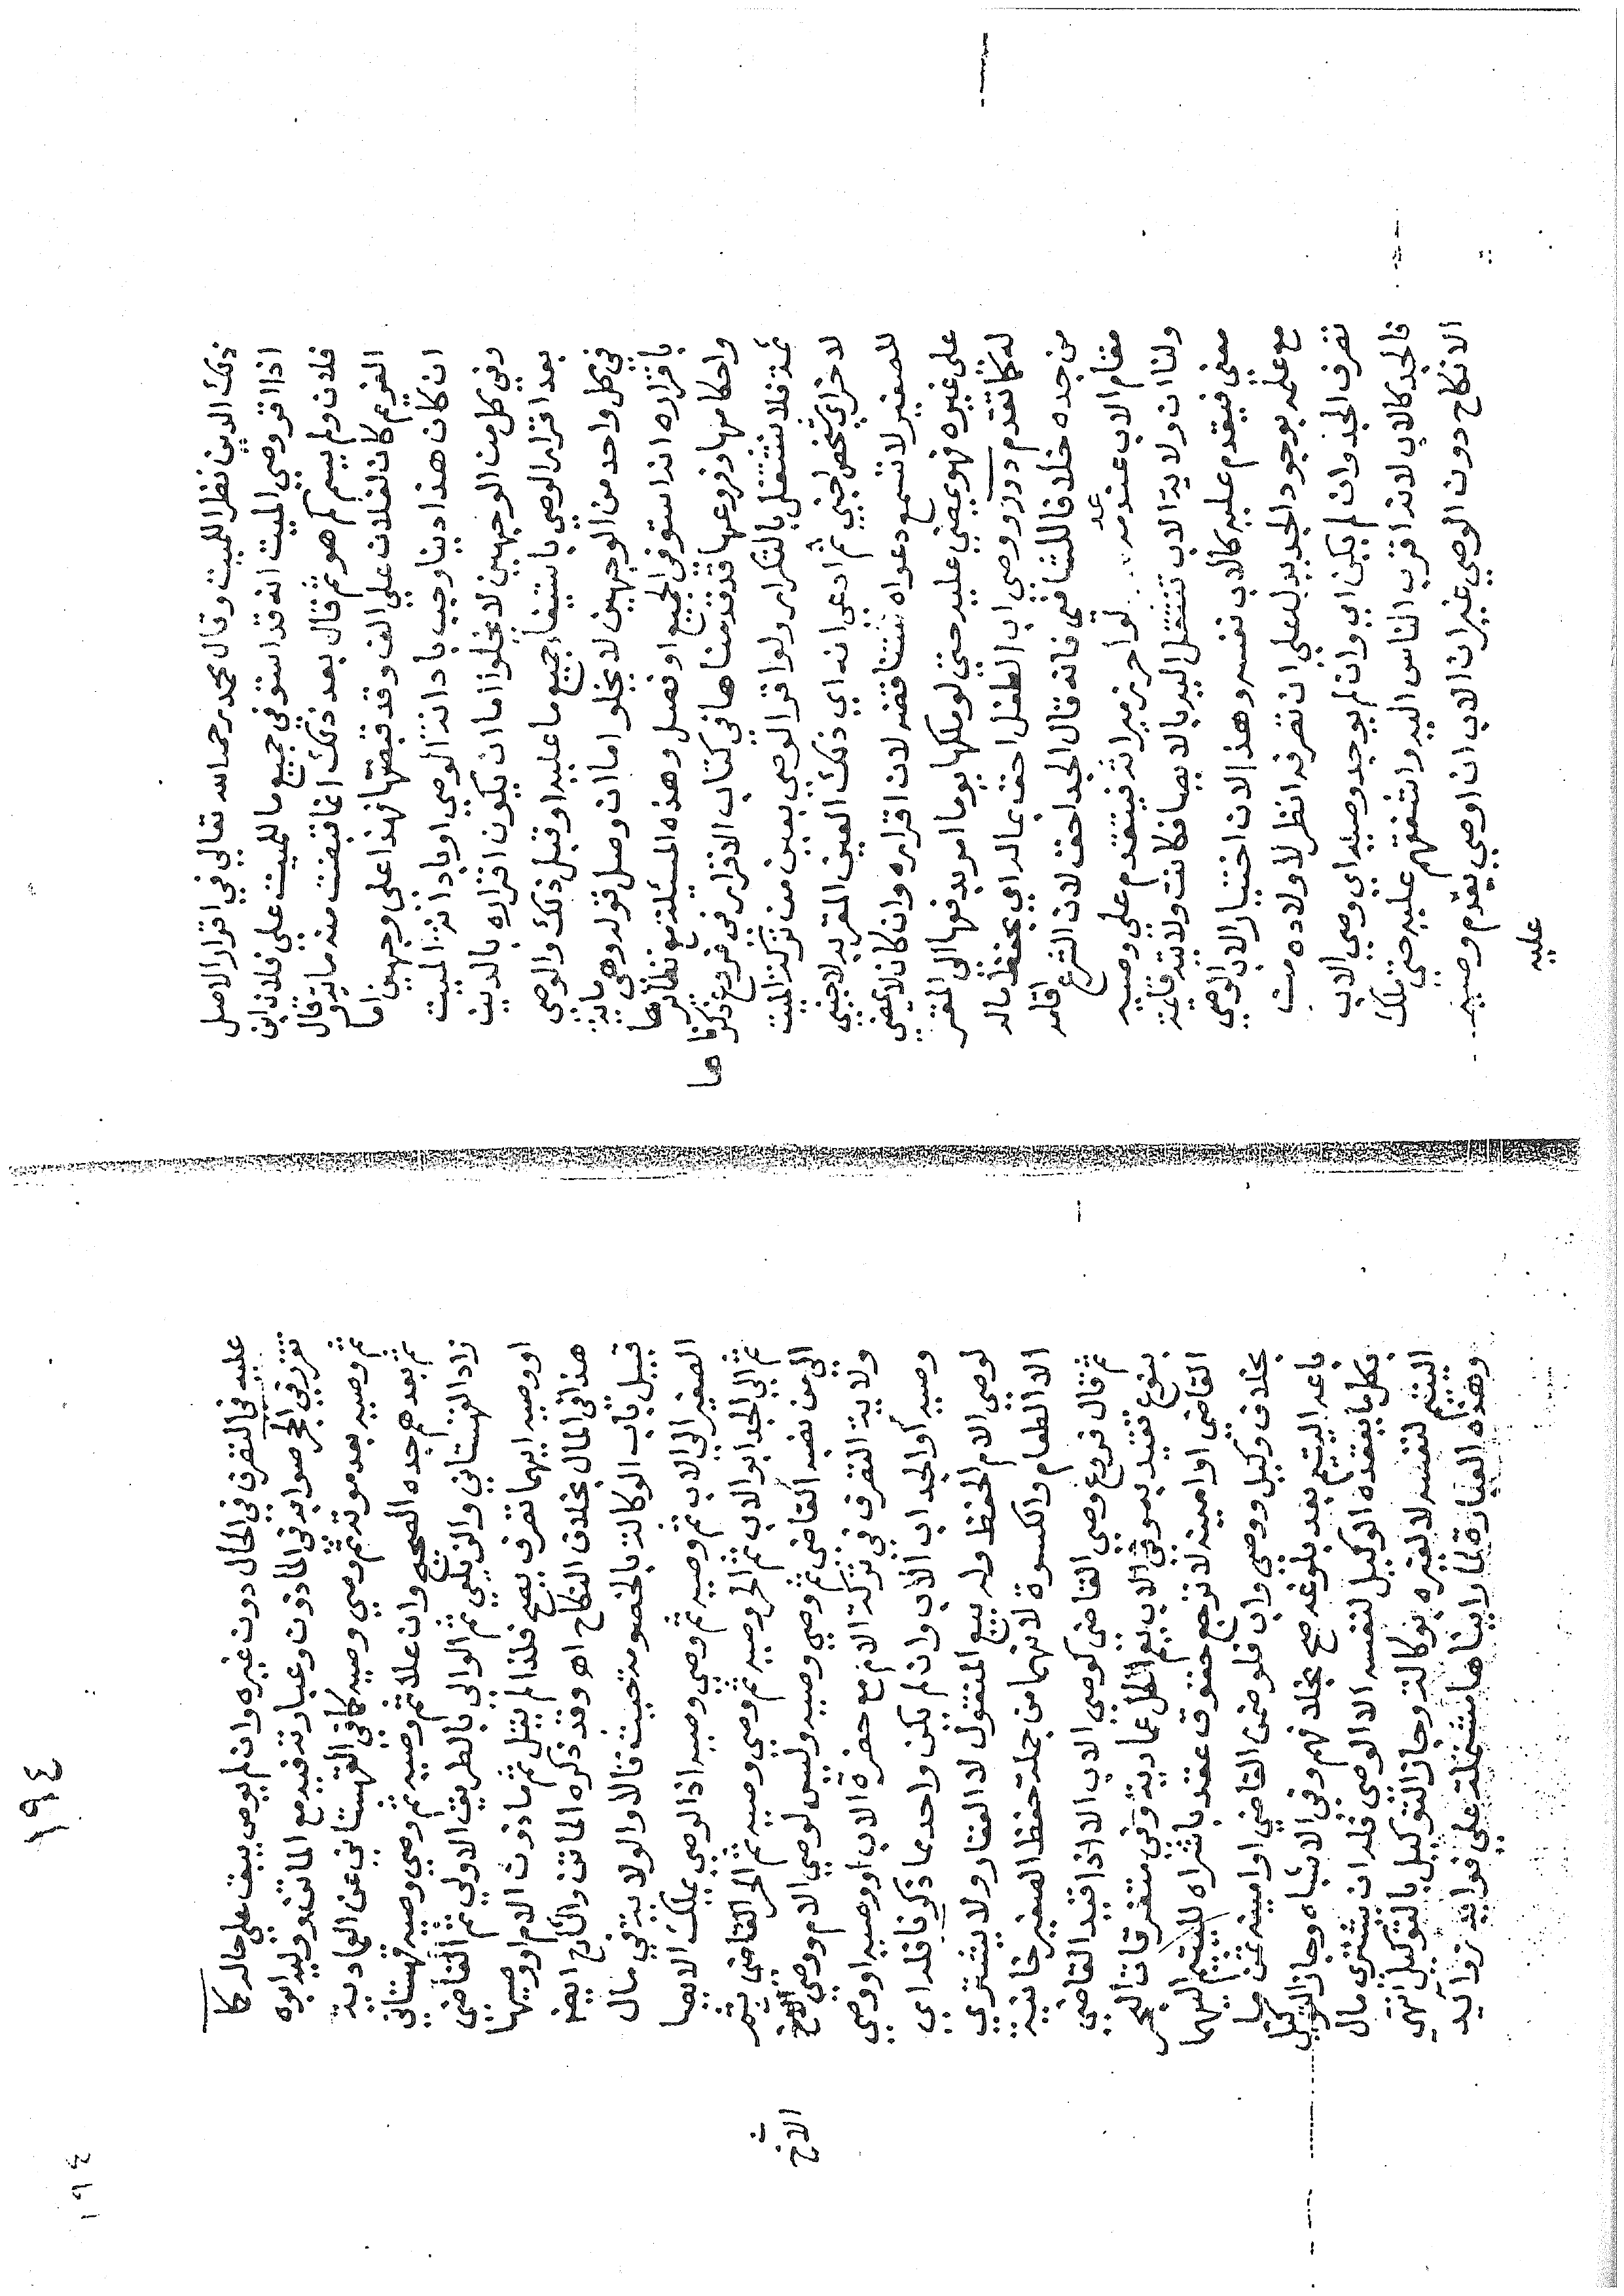 ذلك الدين نظر للميت وقال محمد رحمه الله تعالى في اقرار الاصل
اذا اقر وصي الميت انه قد استوفي جميع ما للميت علي فلان ابن
فلان ولم يسم كم هو ثم قال بعد ذلك انما قبضت منه ماية وقال
الغريم كان لفلان علي الف وقد قبضتها فهذا على وجهين اما
ان كان هذا دينا وجب بادانة الوصي او بادانة الميت
وفي كل من الوجهين لا يخلوا اما ان يكون اقراره بالدين
بعد اقرار الوصي باستيفاء جميع ما عليه او قبل ذلك والوصي
في كل واحد من الوجهين لا يخلو اما ان وصل قوله وهي ماية
باقراره انه استوفي الجميع او فصل وهذه المسئلة مع نظائرها
واحكامها وفروعها قد قدمنا ها في كتاب الاقرار في فروع ذكرنا ها
ثمة فلا نشتغل بالتكرار ولو اقر الوصي بعين من تركة الميت
لاخر اي شخص اجنبي ثم ادعي انه اي ذلك العين المقر به لاجنبي
للصغير لا تسمع دعواه لتناقضه لان اقراره وان كان لا يمضي
على غيره فهو يمضي عليه حتي لو ملكها يوما امر بدفعها الي المقر
له كما تقدم درر ووصي اب الطفل احق بماله اي بحفظ ماله
من جده خلافا للشافعي فانه قال الجد احق لان الشرع اقامه
مقام الاب عند عدمه لو احرز ميراثه فيتقدم علي وصيه
ولنا ان ولاية الاب تنتقل اليه بالايصا فكانت ولايته قايمة
معني فيقدم عليه كالاب نفسه وهذا لان اختيار الاب الوصي
مع علمه بوجود الجد يدل علي ان تصرفه انظر لاولاده من
تصرف الجد وان لم يكن اي وان لم يوجد وصيه اي وصي الاب
فالجد كالاب لانه اقرب الناس اليه واشفقهم عليه حتي ملك
الانكاح دون الوصي غير ان الاب ان اوصي يقدم وصيه
عليه
١٩٤
عليه في التصرف في الحال دون غيره وان لم يوص يبق علي حاله كما
تقرر في الحجر صوابه في الماذون وعبارته فيه مع الماتن ووليه ابوه
ثم وصيه بعد موته ثم وصي وصيه كما في القهستاني عن العمادية
ثم بعدهم جده الصحيح وان علا ثم وصيه ثم وصي وصيه قهستاني
زاد القهستاني والزيلعي ثم الوالي بالطريق الاولي ثم القاضي
او وصيه ايهما تصرف يصح فلذا لم يقل ثم ماذون الام او وصيها
هذا في المال بخلاف النكاح اهـ وقد ذكره الماتن والشارح ايضا
قبيل باب الوكالة بالخصومة حيث قالا والولاية في مال
الصغير الي الاب ثم وصيه ثم وصي وصيه اذ الوصي يملك الايصا
ثم الي الجد ابو الاب ثم الي وصيه ثم وصي وصيه ثم الي القاضي ثم
الي من نصبه القاضي ثم وصي وصيه وليس لوصي الام ووصي الاخ
الاخ
ولاية التصرف في تركة الام مع حضرة الاب او وصيه او وصي
وصيه او الجد اب الاب وان لم يكن واحد مما ذكرنا فله اي
لوصي الام الحفظ وله بيع المنقول لا العقار ولا يشتري
الا الطعام والكسوة لانهما من جملة حفظ الصغير خانية
ثم قال فروع وصي القاضي كوصي الاب الا اذا قيد القاضي
بنوع تقيد به وفي الاب يعم الكل عمادية وفي متفرقات البحر
القاضي او امينه لا ترجع حقوق عقد باشراه لليتيم اليهما
بخلاف وكيل ووصي واب فلو ضمن القاضي او امينه ثمن ما
باعه اليتيم بعد بلوغه صح بخلافهم وفي الاشباه وجاز التوكيل
بكل ما يعقده الوكيل لنفسه الا الوصي فله ان يشتري مال
اليتيم لنفسه لا لغيره بوكالة وجاز التوكيل بالتوكيل انتهي
وهذه العبارة لما رايناها مشتملة علي فوايد زوايد
١٩٤